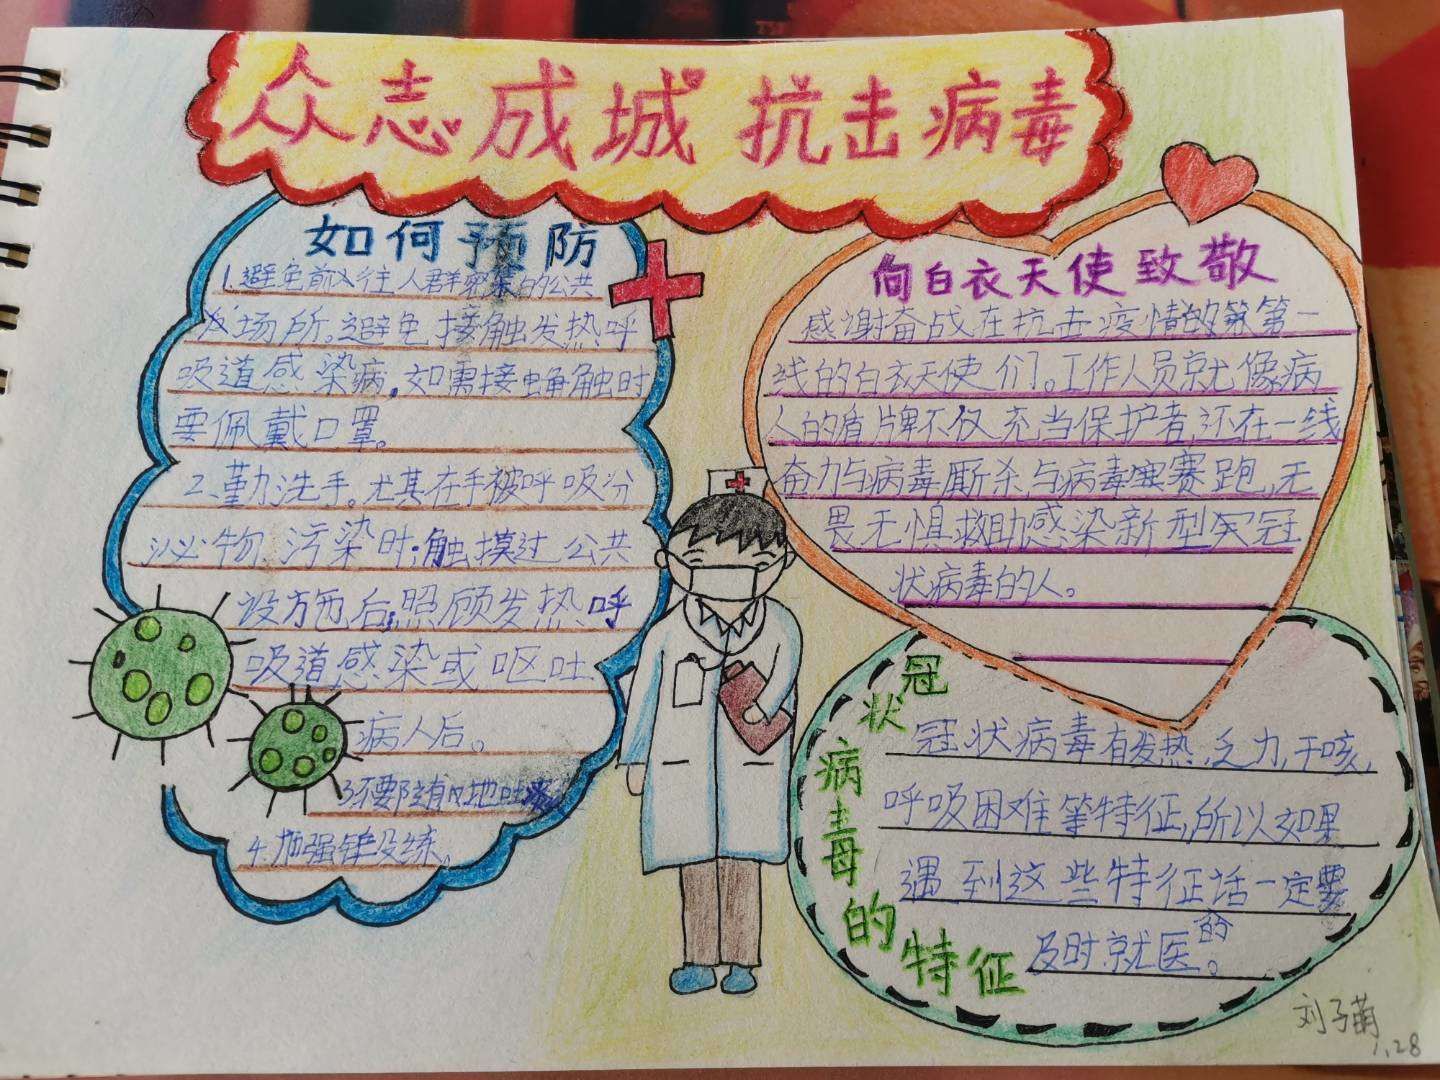 众志成城 抗击病毒
如何预防
1.避免前往人群密集的公共
场所。避免接触发热呼
吸道感染病,如需接触时
要佩戴口罩。
2、勤洗手。尤其在手被呼吸分
泌物污染时;触摸过公共
设施后;照顾发热呼
吸道感染或呕吐
病人后。
3.不要随地吐痰
4.加强锻炼。
向白衣天使致敬
感谢奋战在抗击疫情的第一
线的白衣天使们。工作人员就像病
人的盾牌不仅充当保护者,还在一线
奋力与病毒厮杀,与病毒赛跑,无
畏无惧救助感染新型冠
状病毒的人。
冠状病毒的特征
冠状病毒有发热,乏力,干咳,
呼吸困难等特征,所以如果
遇到这些特征话一定要
及时就医的。
刘子萌
1.28